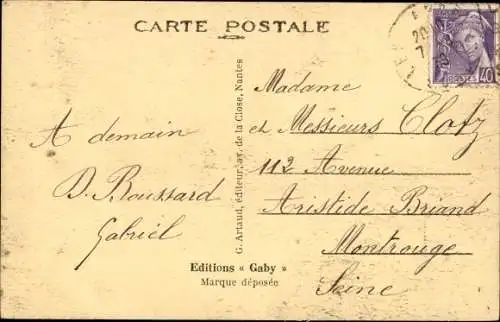 CARTE POSTALE
A demain
D. Roussard
Gabriel
G. Artaud, éditeur, av. de la Close, Nantes
Madame
et Messieurs Clotz
112 Avenue
Aristide Briand
Montrouge
Seine
Editions « Gaby »
Marque déposée
40